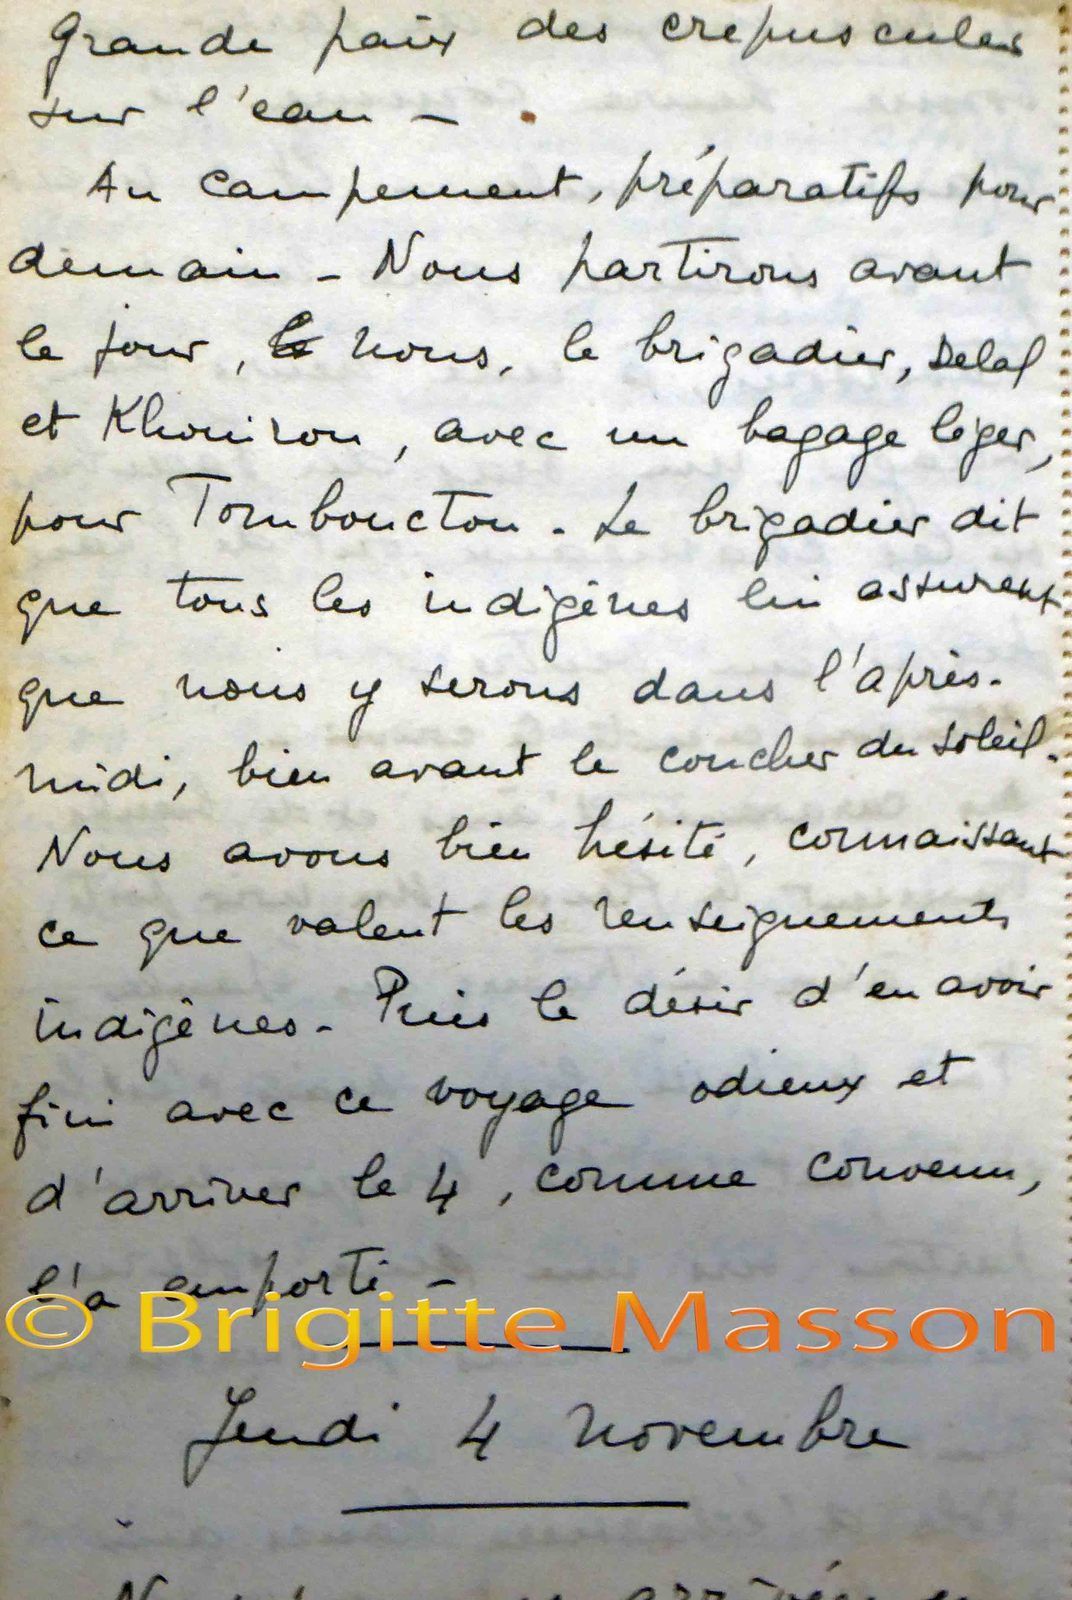 Grande paix des crépuscules
sur l'eau -
Au campement, préparatifs pour
demain - Nous partirons avant
le jour, le nous, le brigadier, Delal
et Khouirou, avec un bagage léger,
pour Tombouctou. Le brigadier dit
que tous les indigènes lui assurent
que nous y serons dans l'après-
midi, bien avant le coucher du soleil.
Nous avons bien hésité, connaissant
ce que valent les renseignements
indigènes - Puis le désir d'en avoir
fini avec ce voyage odieux et
d'arriver le 4, comme convenu,
l'a emporté -
© Brigitte Masson
Jeudi 4 novembre